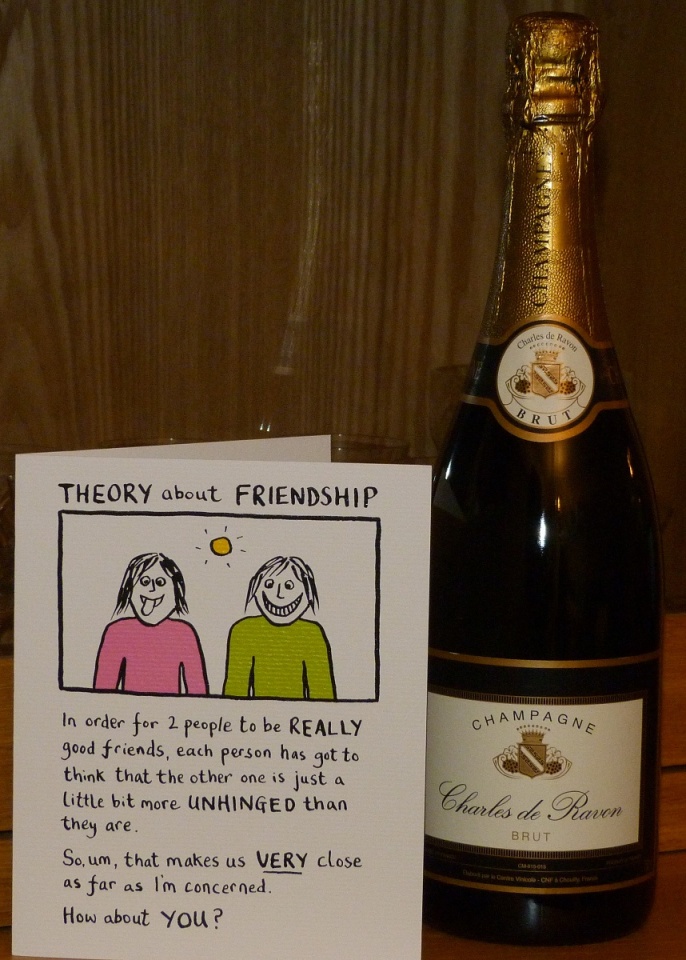 THEORY about FRIENDSHIP
In order for 2 people to be REALLY
good friends, each person has got to
think that the other one is just a
little bit more UNHINGED than
they are.
So, um, that makes us VERY close
as far as I'm concerned.
How about YOU?
CHAMPAGNE
Charles de Ravon
BRUT
CHAMPAGNE
Charles de Ravon
BRUT